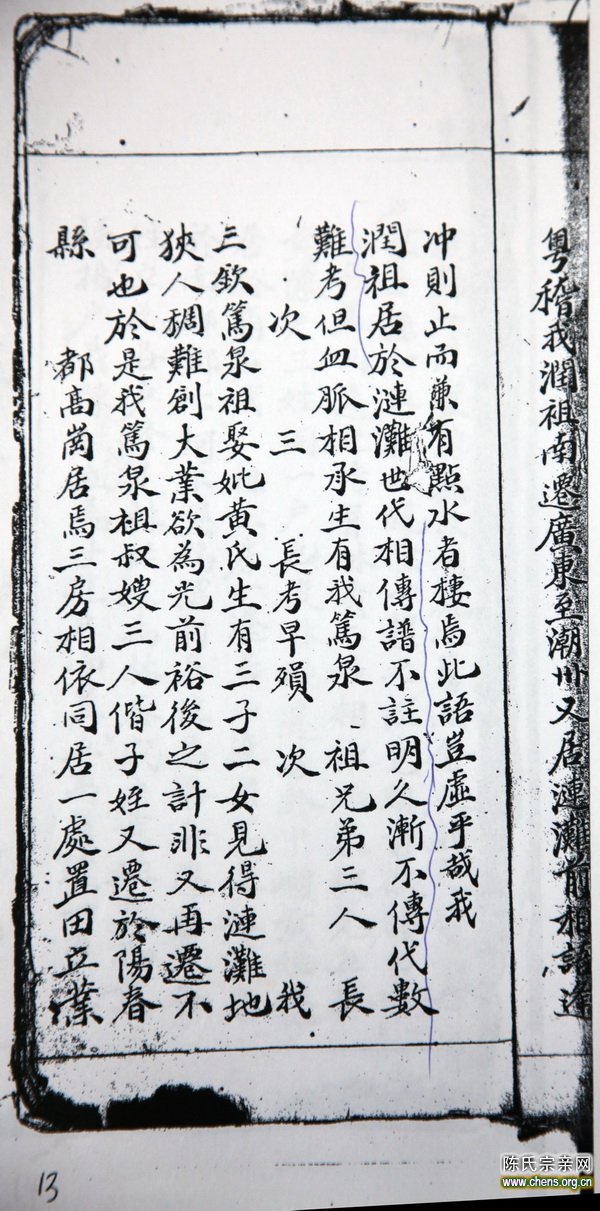 粤稽我潤祖南遷廣東至潮州又居漣灘前相語逢
冲則止而兼有點水者棲焉此語豈虛乎哉我
潤祖居於漣灘世代相傳譜不註明久漸不傳代數
難考但血脈相承生有我篤泉 祖兄弟三人 長
次 三 長考早殞 次 我
三欽篤泉祖娶妣黃氏生有三子二女見得漣灘地
狹人稠難創大業欲為光前裕後之計非又再遷不
可也於是我篤泉祖叔嫂三人偕子姪又遷於陽春
縣 都高崗居焉三房相依同居一處置田立業
13
陈氏宗亲网
www.chens.org.cn